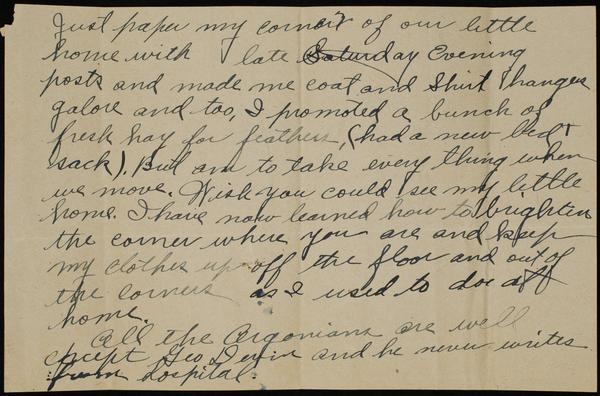 Just paper my corner of our little
home with late Saturday Evening
posts and made me coat and Shirt hanger
galore and too, I promoted a bunch of
fresh hay for feathers, (had a new bed
sack). But am to take every thing when
we move. Wish you could see my little
home. I have now learned how to brighten
the corner where you are and keep
my clothes up off the floor and out of
the corners as I used to do at
home.
All the Argonians are well
except Geo and he never writes
from hospital.